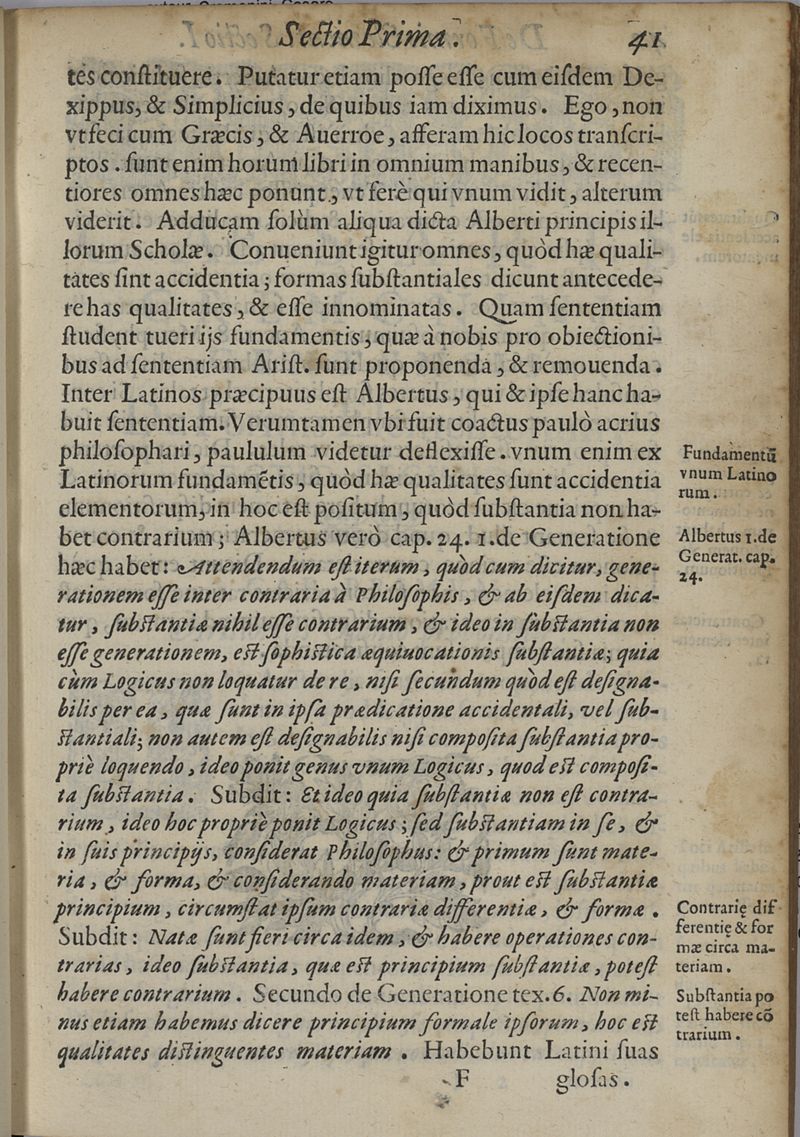 Sectio Prima. 41
tes conſtituere. Putatur etiam poſſe eſſe cum eiſdem De-
xippus, & Simplicius, de quibus iam diximus. Ego, non
vt feci cum Græcis, & Auerroe, afferam hic locos tranſcri-
ptos. ſunt enim horum libri in omnium manibus, & recen-
tiores omnes hæc ponunt, vt ferè qui vnum vidit, alterum
viderit. Adducam ſolùm aliqua dicta Alberti principis il-
lorum Scholæ. Conueniunt igitur omnes, quòd hæ quali-
tates ſint accidentia; formas ſubſtantiales dicunt antecede-
re has qualitates, & eſſe innominatas. Quam ſententiam
ſtudent tueri ijs fundamentis, quæ à nobis pro obiectioni-
bus ad ſententiam Ariſt. ſunt proponenda, & remouenda.
Inter Latinos præcipuus eſt Albertus, qui & ipſe hanc ha-
buit ſententiam. Verumtamen vbi fuit coactus paulò acrius
philoſophari, paululum videtur deflexiſſe. vnum enim ex
Latinorum fundamētis, quòd hæ qualitates ſunt accidentia
elementorum, in hoc eſt poſitum, quòd ſubſtantia non ha-
bet contrarium; Albertus verò cap. 24. 1. de Generatione
hæc habet: Attendendum eſt iterum, quod cum dicitur, gene-
rationem eſſe inter contraria à Philoſophis, & ab eiſdem dica-
tur, ſubſtantiæ nihil eſſe contrarium, & ideo in ſubſtantia non
eſſe generationem, eſt ſophiſtica æquiuocationis ſubſtantiæ; quia
cùm Logicus non loquatur de re, niſi ſecundum quod eſt deſigna-
bilis per ea, quæ ſunt in ipſa prædicatione accidentali, vel ſub-
ſtantiali; non autem eſt deſignabilis niſi compoſita ſubſtantia pro-
priè loquendo, ideo ponit genus vnum Logicus, quod eſt compoſi-
ta ſubſtantia. Subdit: Et ideo quia ſubſtantiæ non eſt contra-
rium, ideo hoc propriè ponit Logicus; ſed ſubſtantiam in ſe, &
in ſuis principijs, conſiderat Philoſophus: & primum ſunt mate-
ria, & forma, & conſiderando materiam, prout eſt ſubſtantiæ
principium, circumſtat ipſum contrariæ differentiæ, & formæ.
Subdit: Natæ ſunt fieri circa idem, & habere operationes con-
trarias, ideo ſubſtantia, quæ eſt principium ſubſtantiæ, poteſt
habere contrarium. Secundo de Generatione tex. 6. Non mi-
nus etiam habemus dicere principium formale ipſorum, hoc eſt
qualitates diſtinguentes materiam. Habebunt Latini ſuas
F gloſas.
Fundamentū
vnum Latino
rum.
Albertus 1. de
Generat. cap.
24.
Contrarię dif
ferentię & for
mæ circa ma-
teriam.
Subſtantia po
teſt habere cō
trarium.